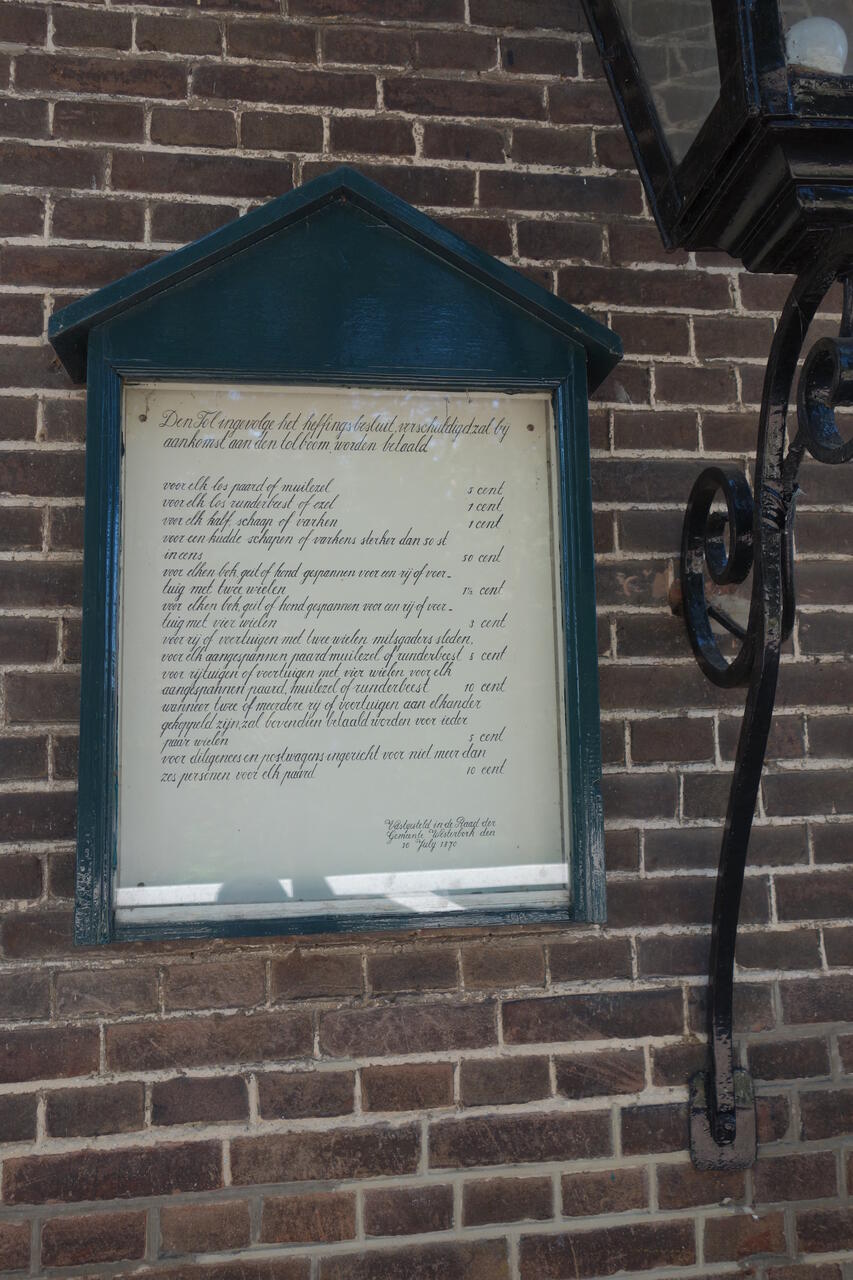 Den Tol ingevolge het heffingsbesluit, verschuldigd zal bij
aankomst aan den tolboom, worden betaald
voor elk los paard of muilezel 5 cent
voor elk los runderbeest of ezel 1 cent
voor elk half, schaap of varken 1 cent
voor een kudde schapen of varkens sterker dan 50 st
ineens 50 cent
voor elken bok, geit of hond gespannen voor een rij of voer-
tuig met twee wielen 1½ cent
voor elken bok, geit of hond gespannen voor een rij of voer-
tuig met vier wielen 3 cent
voor rij of voertuigen met twee wielen mitsgaders sleden,
voor elk aangespannen paard muilezel of runderbeest 5 cent
voor rijtuigen of voertuigen met vier wielen, voor elk
aangespannen paard, muilezel of runderbeest 10 cent
wanneer twee of meerdere rij of voertuigen aan elkander
gekoppeld zijn, zal bovendien betaald worden voor ieder
paar wielen 5 cent
voor diligences en postwagens ingericht voor niet meer dan
zes personen voor elk paard 10 cent
Vastgesteld in de Raad der
Gemeente Westerbork den
10 July 1870